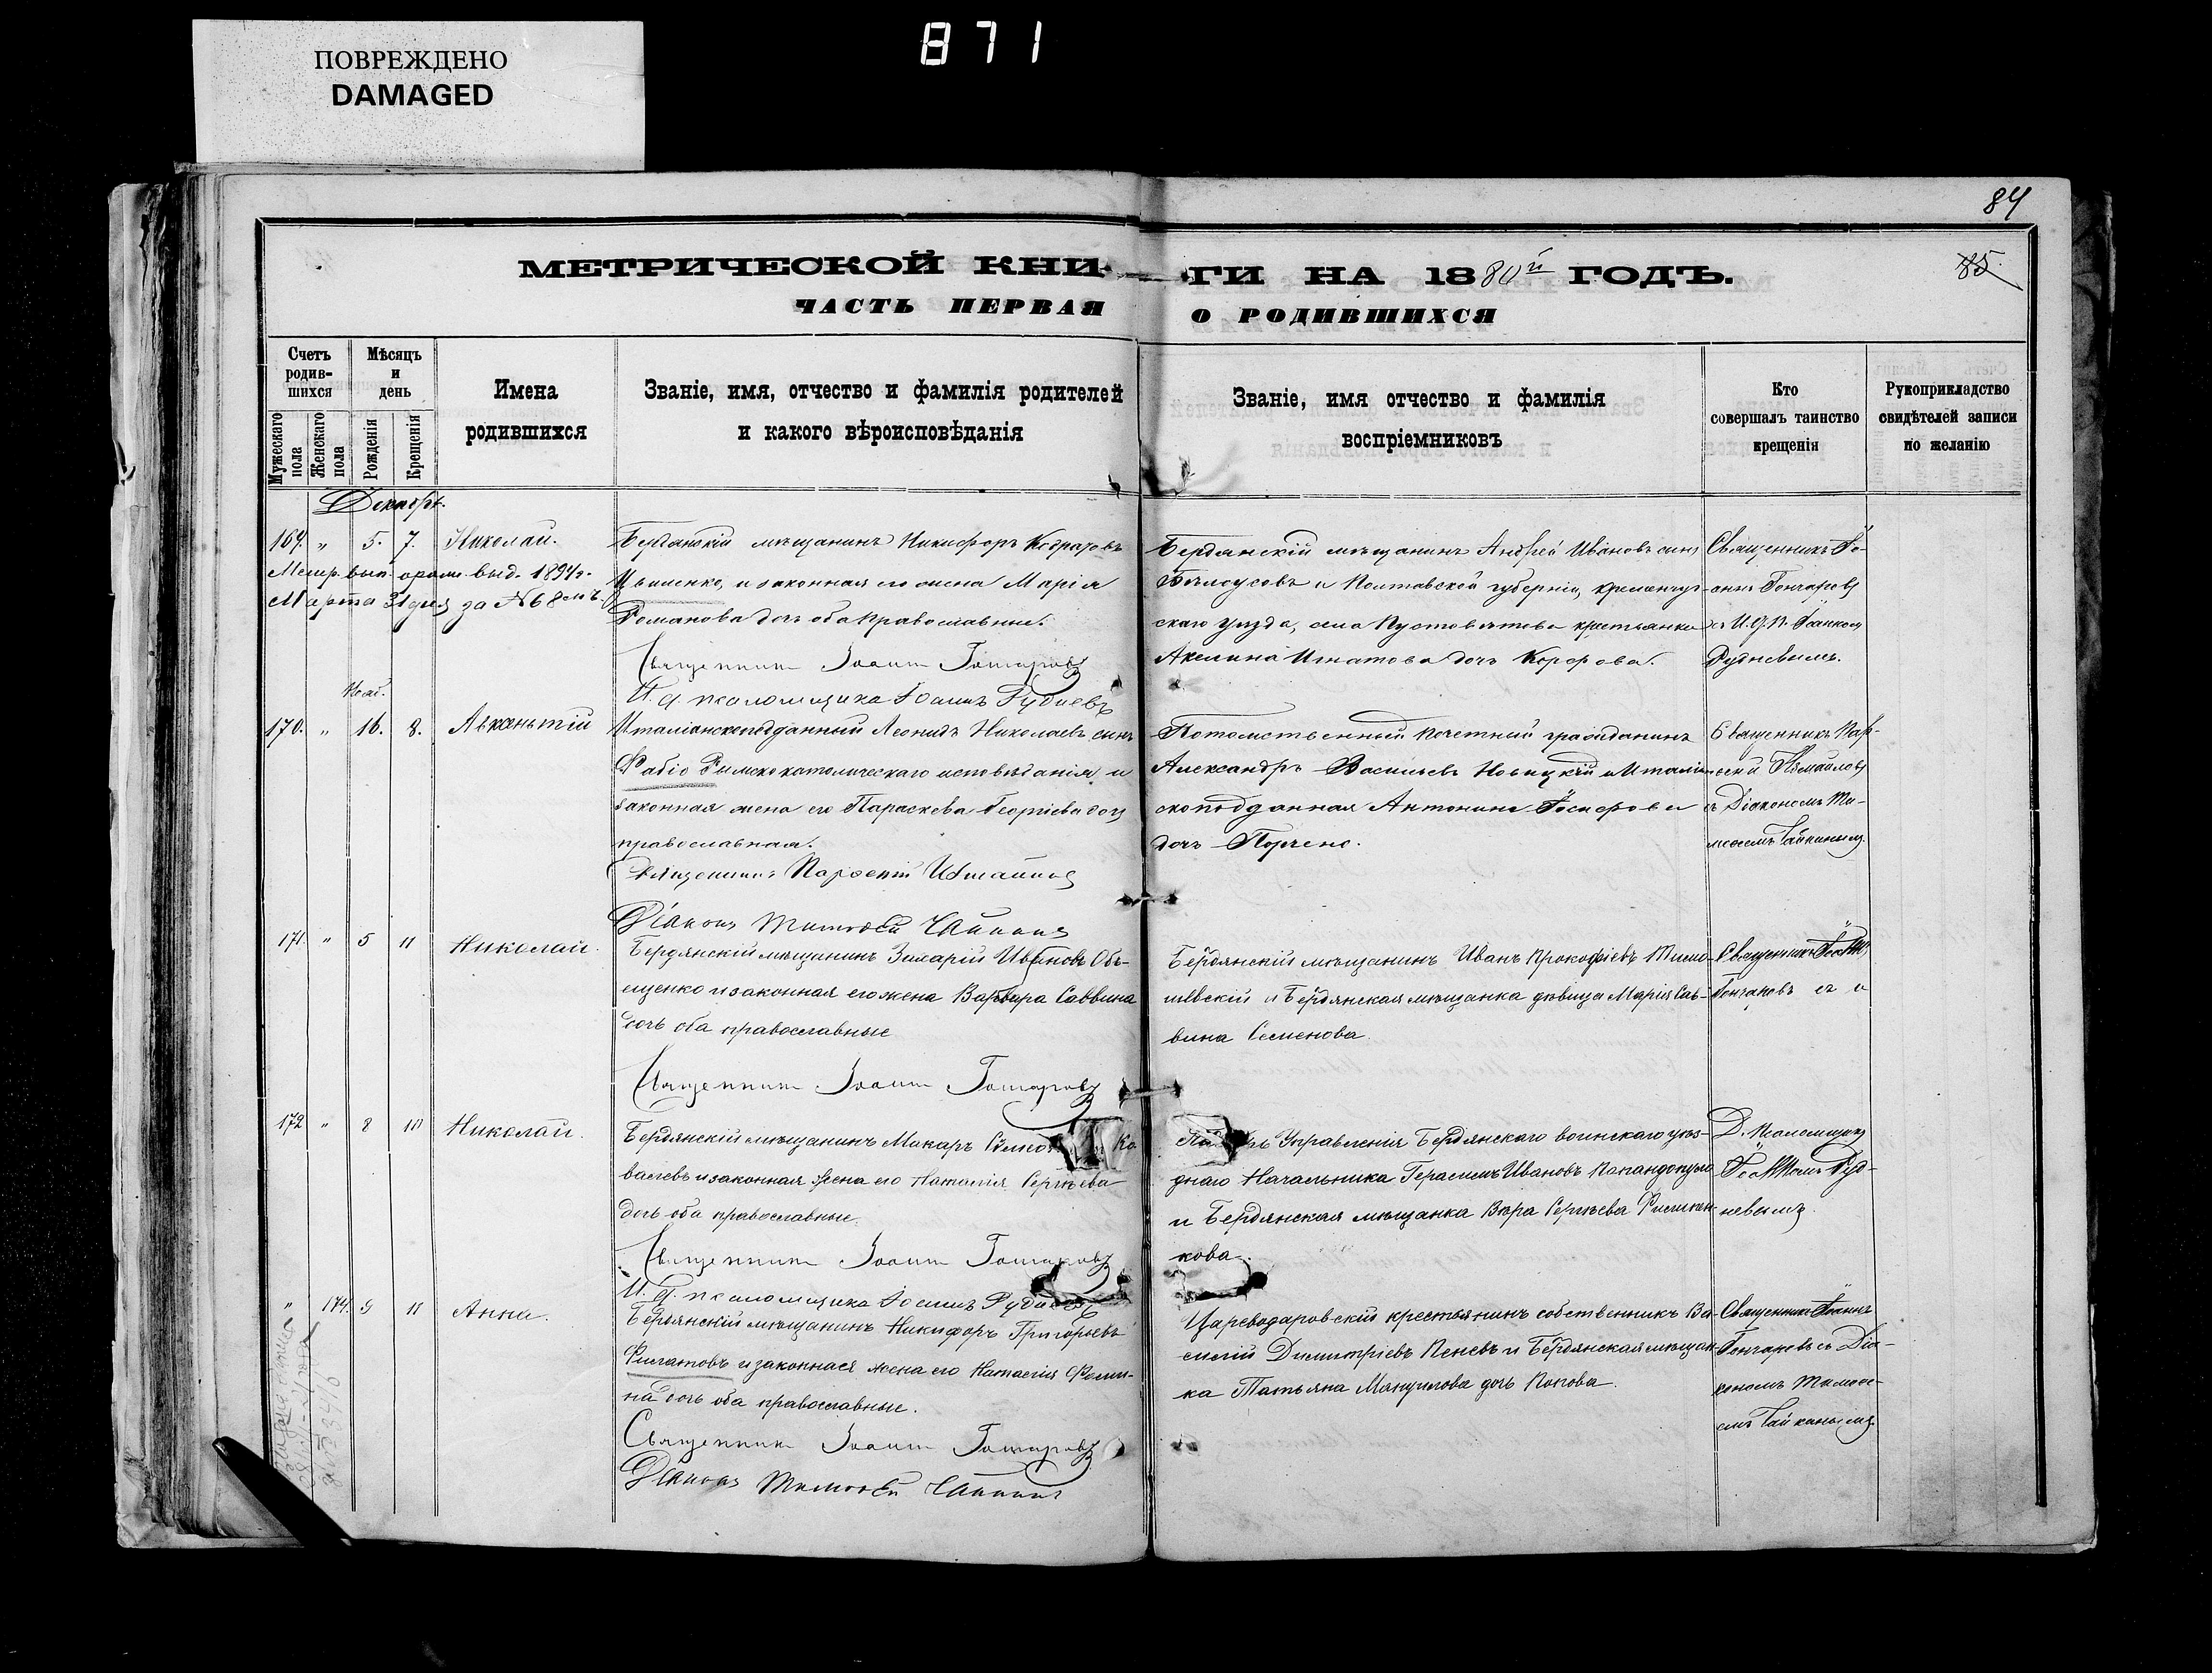 ПОВРЕЖДЕНО
DAMAGED
871
84
85
МЕТРИЧЕСКОЙ КНИ-ГИ НА 1880й ГОДЪ.
ЧАСТЬ ПЕРВАЯ О РОДИВШИХСЯ
Счетъ родив-шихся
Мужескаго пола
Женскаго пола
Мѣсяцъ и день
Рожденія
Крещенія
Имена родившихся
Званіе, имя, отчество и фамилія родителей
и какого вѣроисповѣданія
Званіе, имя отчество и фамилія
воспріемниковъ
Кто
совершалъ таинство
крещенія
Рукоприкладство
свидѣтелей записи
по желанію
Декабрь.
169. " 5. 7. Николай.
Метр. вып. выд. 1894г.
Марта 31 дня за №68
Бердянскій мѣщанинъ Никифоръ
и законная его жена Марія
Романова дочь оба православные.
Священникъ Іоаннъ Гончаровъ
И. д. псаломщика Іоаннъ Рудневъ
Бердянскій мѣщанинъ Андрей Ивановъ сынъ
Бѣлоусовъ и Полтавской губерніи, кременчуг-
скаго уѣзда, села крестьянка
Акелина Игнатова дочь
Священникъ Іо-
аннъ Гончаровъ
съ И. д. п. Іоанномъ
Рудневымъ.
Нояб.
170. " 16. 8. Авксентій
Италіанскоподданный Леонидъ Николаевъ сынъ
Фабіо Римскокатолическаго исповѣданія и
законная жена его Параскева Георгіева дочь
православная.
Священникъ Парѳеній Измайловъ
Діаконъ Тимоѳей Чайкинъ
Потомственный почетный гражданинъ
Александръ Васильевъ Новицкій и Италіян-
скоподданная Антонина Іосифова
дочь
Священникъ Пар-
ѳеній Измайловъ
съ Діакономъ Ти-
моѳеемъ Чайкинымъ.
171. " 5 11 Николай.
Бердянскій мѣщанинъ Захарій Ивановъ Объ-
ещенко и законная его жена Варвара Саввина
дочь оба православные
Священникъ Іоаннъ Гончаровъ
Бердянскій мѣщанинъ Иванъ Прокофіевъ Тимо-
шевскій и Бердянская мѣщанка дѣвица Марія Сав-
вина Семенова.
Священникъ Іоаннъ
Гончаровъ съ и
172 " 8 Николай.
Бердянскій мѣщанинъ Макаръ Ко
валевъ и законная жена его Наталія Сергѣева
дочь оба православные.
Священникъ Іоаннъ Гончаровъ
И. д. псаломщика Іоаннъ Рудневъ
Управленія Бердянскаго воинскаго уѣз-
днаго Начальника Герасимъ Ивановъ Папандопуло
и Бердянская мѣщанка Вѣра Сергѣева
кова.
Д. Псаломщикъ
Іоанномъ Руд-
невымъ.
" 174. 9 11 Анна.
Бердянскій мѣщанинъ Никифоръ Григорьевъ
Филатовъ и законная жена его Наталія Фоми-
на дочь оба православные.
Священникъ Іоаннъ Гончаровъ
Діаконъ Тимоѳей Чайкинъ
Цареводаровскій крестьянинъ собственникъ Ва-
силій Димитріевъ Пеневъ и Бердянская мѣщан-
ка Татьяна Мануилова дочь Попова.
Священникъ Іоаннъ
Гончаровъ съ Діа-
кономъ Тимоѳе-
емъ Чайкинымъ